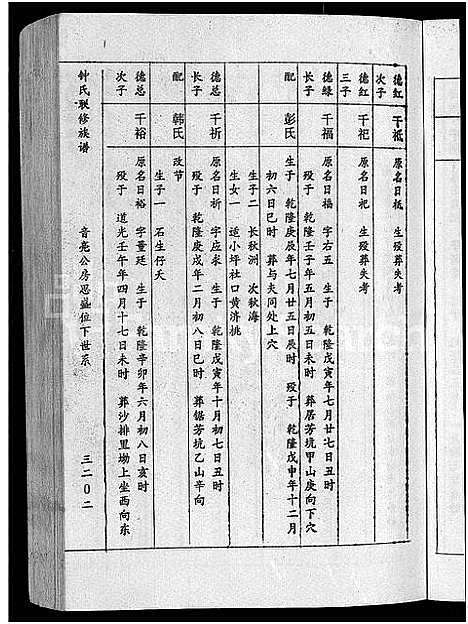 德红次子 干祗 原名日祗 生殁葬失考
德红三子 干祀 原名日祀 生殁葬失考
德缘长子 干福 原名日福 字右五 生于 乾隆戊寅年七月廿七日丑时
殁于 乾隆壬子年五月初五日未时 葬居芳坑甲山庚向下穴
配 彭氏 生于 乾隆庚辰年七月廿五日辰时 殁于 乾隆戊申年十二月
初六日巳时 葬与夫同处上穴
生子二 长秋洲 次秋海
生女一 适小坪社口黄济桃
德总长子 干祈 原名日祈 字应求 生于 乾隆戊寅年十月初七日丑时
殁于 乾隆庚戌年二月初八日巳时 葬锯芳坑乙山辛向
配 韩氏 改节
生子一 石生仔夭
德总次子 干裕 原名日裕 字董廷 生于 乾隆辛卯年六月初八日亥时
殁于 道光壬午年四月十七日未时 葬沙排里坳上坐西向东
钟氏联修族谱 音亮公房恩盛位下世系 三二〇二